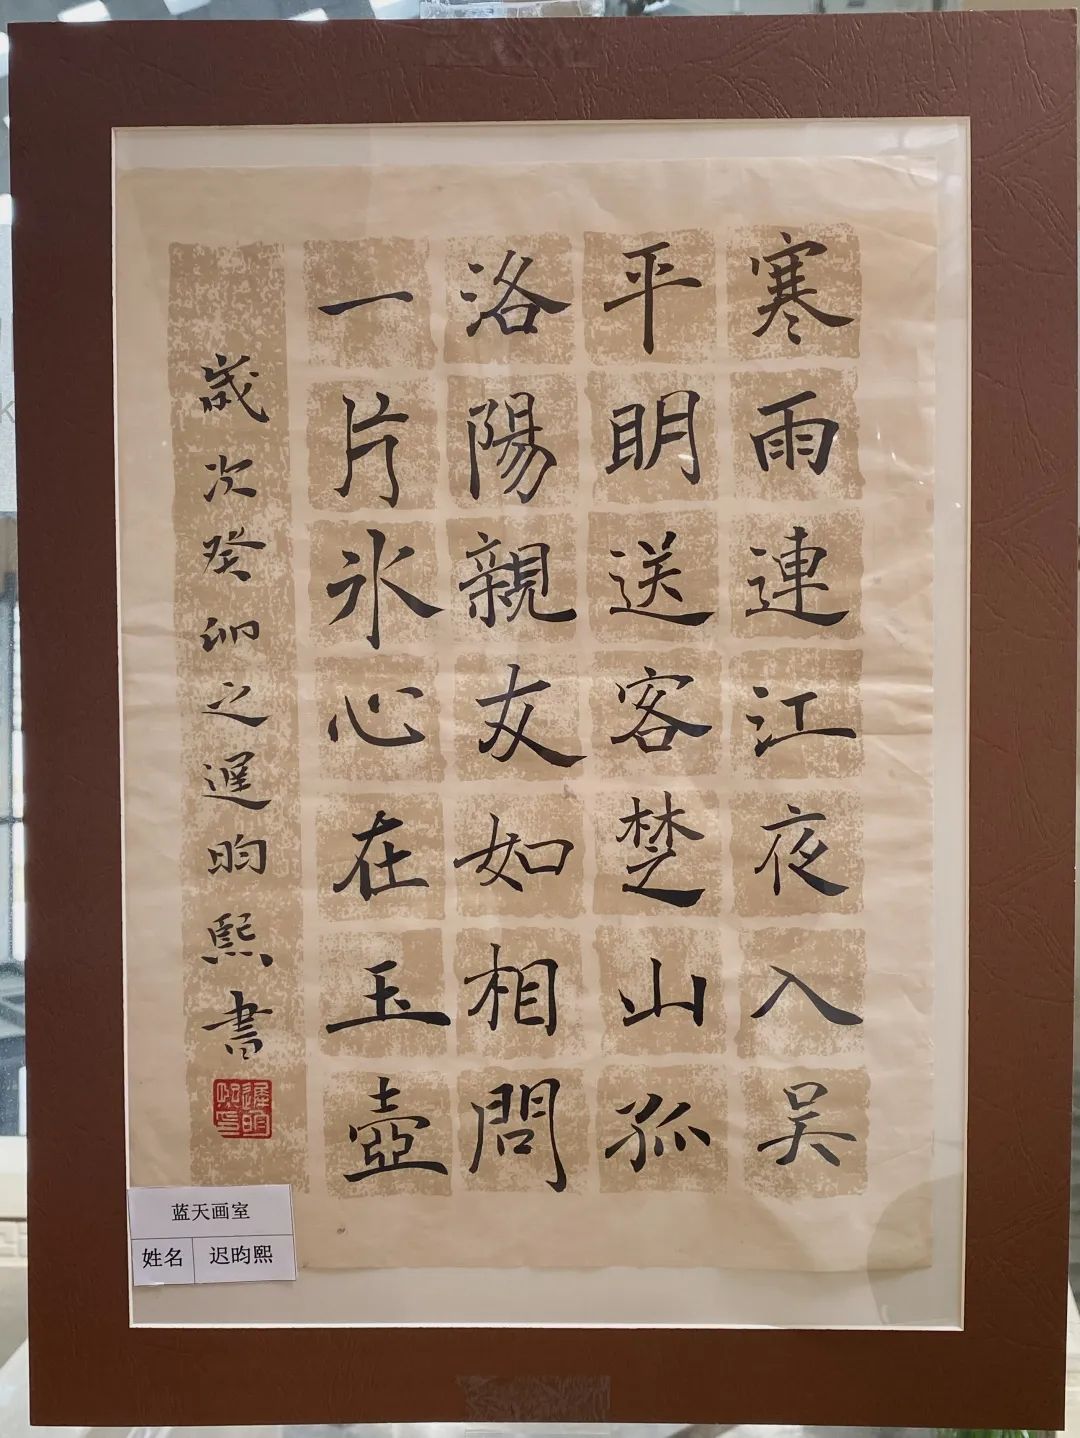 寒雨連江夜入吴
平明送客楚山孤
洛陽親友如相問
一片氷心在玉壺
歲次癸卯之遲昀熙書
蓝天画室
姓名 迟昀熙